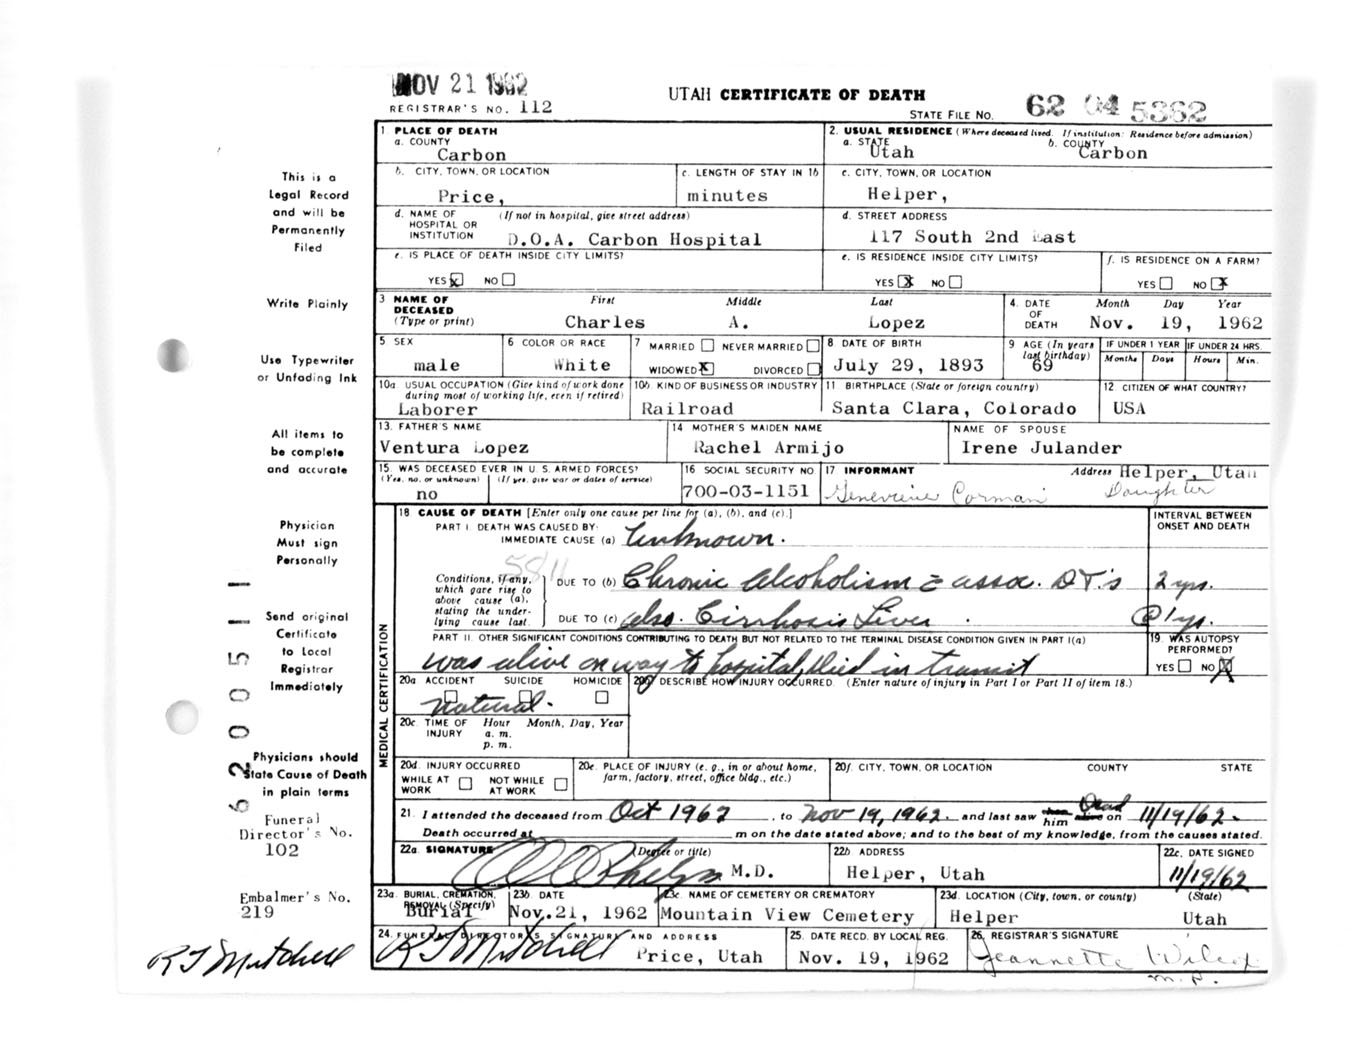 NOV 21 1962
REGISTRAR'S NO. 112
UTAH CERTIFICATE OF DEATH
STATE FILE NO. 62 04 5362
1. PLACE OF DEATH
a. COUNTY
Carbon
2. USUAL RESIDENCE (Where deceased lived. If institution: Residence before admission)
a. STATE
Utah
b. COUNTY
Carbon
b. CITY, TOWN, OR LOCATION
Price,
c. LENGTH OF STAY IN 1b
minutes
c. CITY, TOWN, OR LOCATION
Helper,
d. NAME OF HOSPITAL OR INSTITUTION
(If not in hospital, give street address)
D.O.A. Carbon Hospital
d. STREET ADDRESS
117 South 2nd East
e. IS PLACE OF DEATH INSIDE CITY LIMITS?
YES x NO
e. IS RESIDENCE INSIDE CITY LIMITS?
YES X NO
f. IS RESIDENCE ON A FARM?
YES NO X
3 NAME OF DECEASED
(Type or print)
First Middle Last
Charles A. Lopez
4. DATE OF DEATH
Month Day Year
Nov. 19, 1962
5 SEX
male
6 COLOR OR RACE
White
7 MARRIED NEVER MARRIED
WIDOWED X DIVORCED
8 DATE OF BIRTH
July 29, 1893
9 AGE (In years last birthday)
69
IF UNDER 1 YEAR
Months Days
IF UNDER 24 HRS.
Hours Min.
10a. USUAL OCCUPATION (Give kind of work done during most of working life, even if retired)
Laborer
10b. KIND OF BUSINESS OR INDUSTRY
Railroad
11 BIRTHPLACE (State or foreign country)
Santa Clara, Colorado
12. CITIZEN OF WHAT COUNTRY?
USA
13. FATHER'S NAME
Ventura Lopez
14 MOTHER'S MAIDEN NAME
Rachel Armijo
NAME OF SPOUSE
Irene Julander
15. WAS DECEASED EVER IN U. S. ARMED FORCES?
(Yes, no, or unknown) (If yes, give war or dates of service)
no
16 SOCIAL SECURITY NO
700-03-1151
17 INFORMANT
Address Helper, Utah
Genevieve Corman Daughter
18 CAUSE OF DEATH [Enter only one cause per line for (a), (b), and (c).]
INTERVAL BETWEEN ONSET AND DEATH
PART I. DEATH WAS CAUSED BY:
IMMEDIATE CAUSE (a) Unknown.
5811
Conditions, if any, which gave rise to above cause (a), stating the underlying cause last.
DUE TO (b) Chronic Alcoholism c̄ assoc. DT's 2 yrs.
DUE TO (c) also. Cirrhosis Liver. @ 1 yr.
PART II. OTHER SIGNIFICANT CONDITIONS CONTRIBUTING TO DEATH BUT NOT RELATED TO THE TERMINAL DISEASE CONDITION GIVEN IN PART I(a)
was alive on way to hospital, died in transit
19. WAS AUTOPSY PERFORMED?
YES NO X
20a ACCIDENT SUICIDE HOMICIDE
natural.
20b DESCRIBE HOW INJURY OCCURRED. (Enter nature of injury in Part I or Part II of item 18.)
20c. TIME OF INJURY
Hour Month, Day, Year
a. m.
p. m.
20d. INJURY OCCURRED
WHILE AT WORK NOT WHILE AT WORK
20e. PLACE OF INJURY (e. g., in or about home, farm, factory, street, office bldg., etc.)
20f. CITY, TOWN, OR LOCATION COUNTY STATE
21. I attended the deceased from Oct 1962, to Nov 19, 1962. and last saw him Dead on 11/19/62.
Death occurred at m on the date stated above; and to the best of my knowledge, from the causes stated.
22a. SIGNATURE (Degree or title)
M.D.
22b ADDRESS
Helper, Utah
22c. DATE SIGNED
11/19/62
23a. BURIAL, CREMATION, REMOVAL (Specify)
Burial
23b. DATE
Nov.21, 1962
23c. NAME OF CEMETERY OR CREMATORY
Mountain View Cemetery
23d. LOCATION (City, town, or county) (State)
Helper Utah
24. FUNERAL DIRECTOR'S SIGNATURE AND ADDRESS
R J Mitchell Price, Utah
25. DATE RECD. BY LOCAL REG.
Nov. 19, 1962
26. REGISTRAR'S SIGNATURE
Jeannette Wilcox
m.p.
MEDICAL CERTIFICATION
This is a
Legal Record
and will be
Permanently
Filed
Write Plainly
Use Typewriter
or Unfading Ink
All items to
be complete
and accurate
Physician
Must sign
Personally
Send original
Certificate
to Local
Registrar
Immediately
Physicians should
State Cause of Death
in plain terms
Funeral
Director's No.
102
Embalmer's No.
219
R J Mitchell